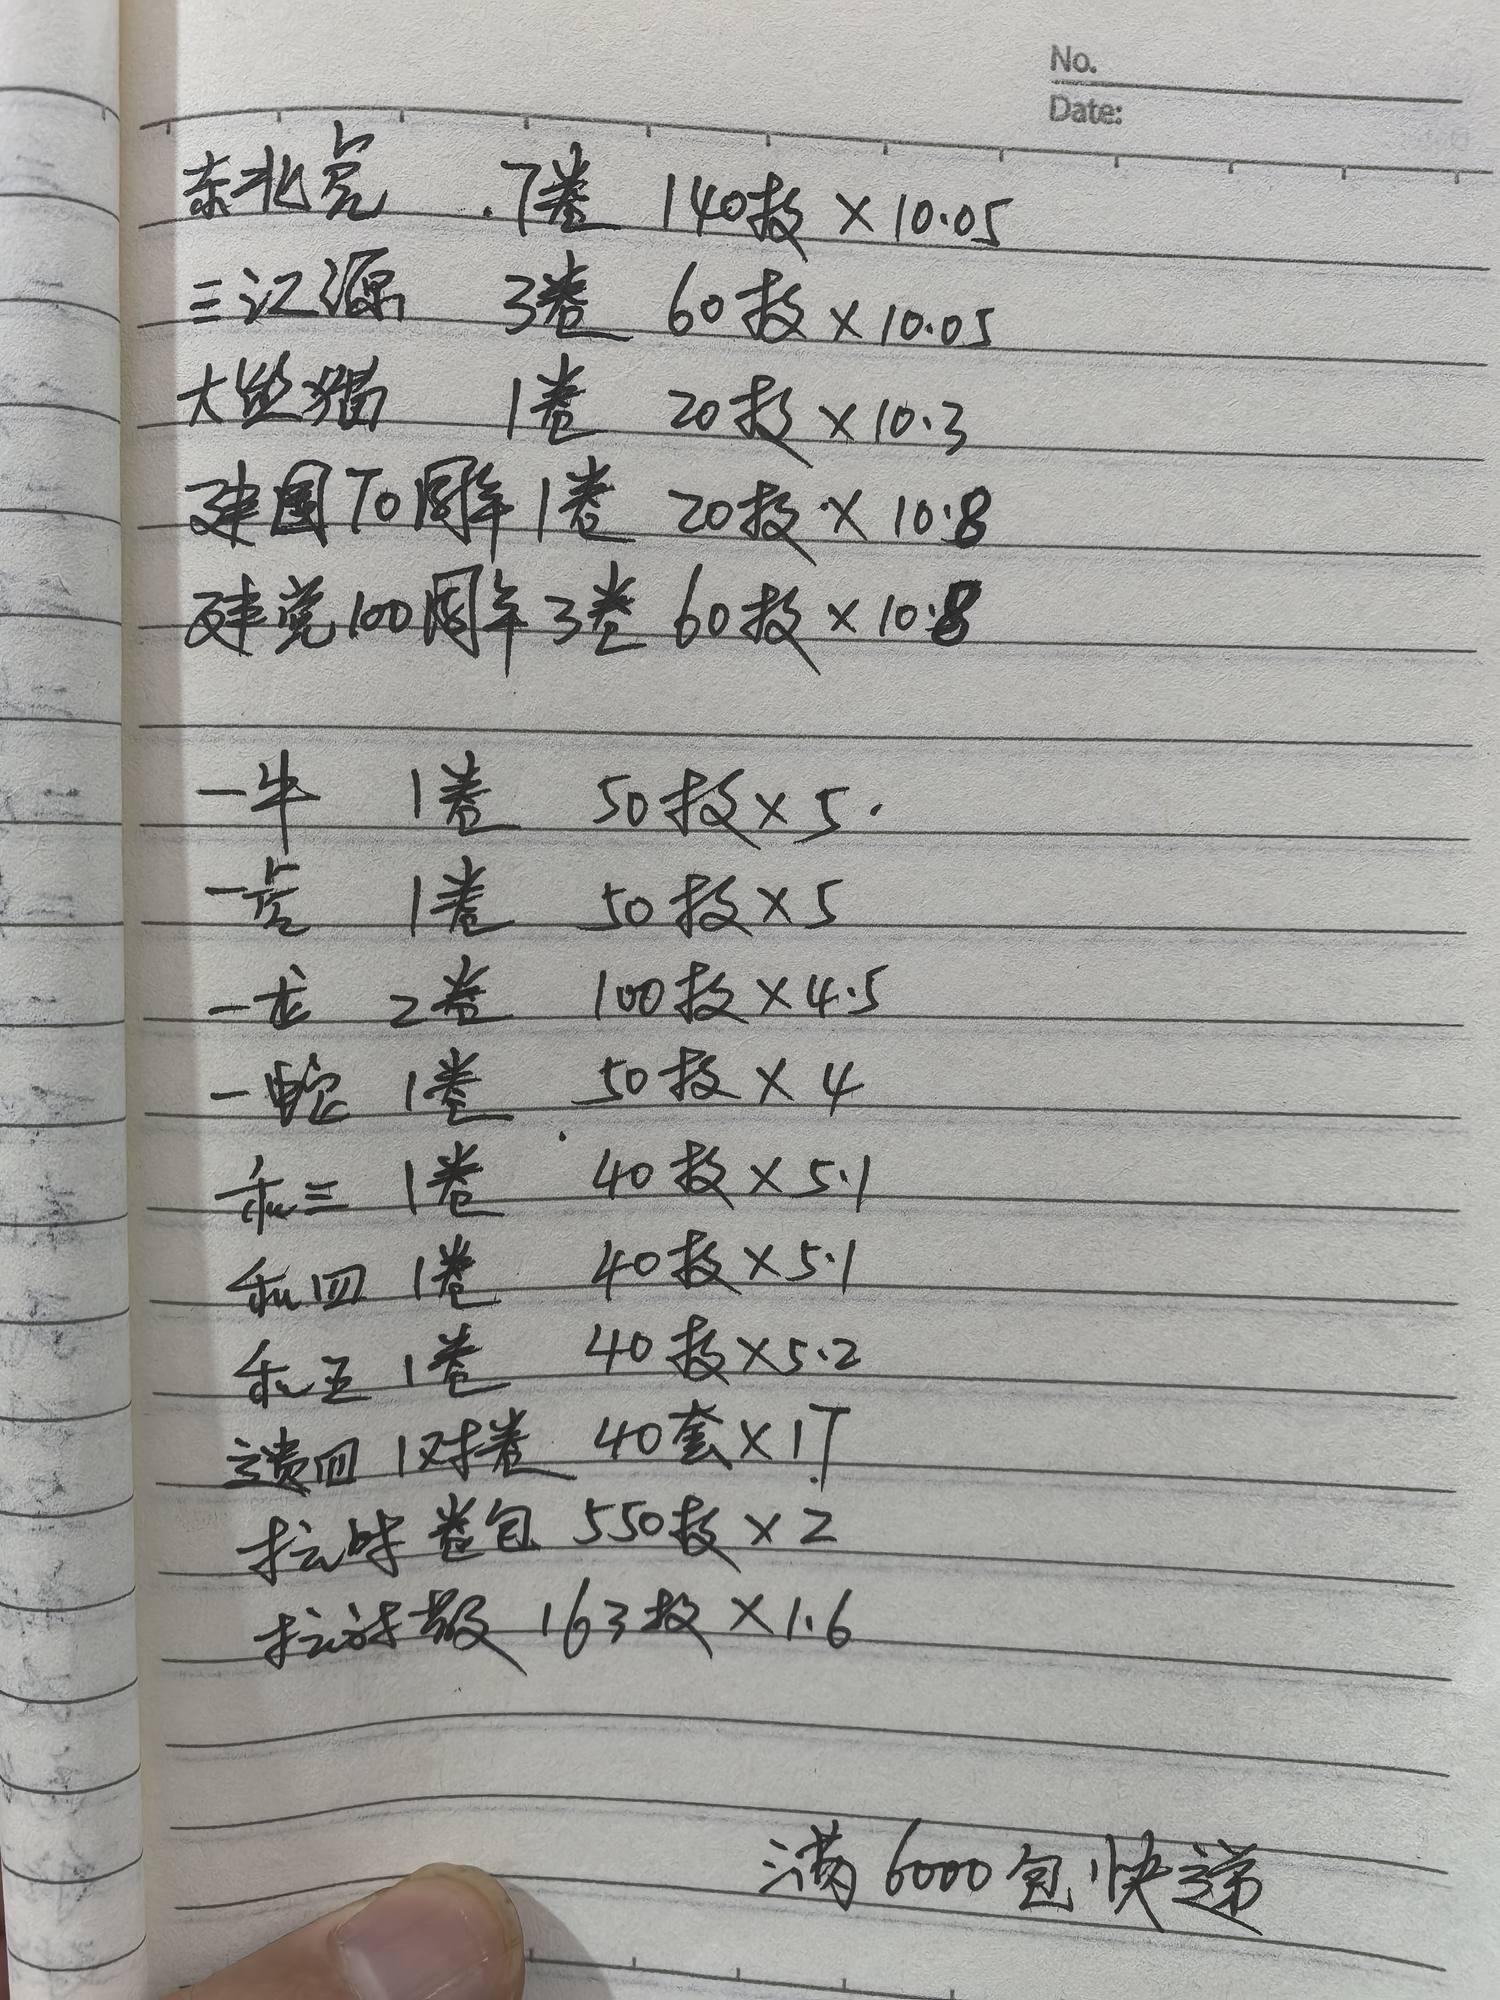 No.
Date:
东北虎 7卷 140枚×10.05
三江源 3卷 60枚×10.05
大熊猫 1卷 20枚×10.3
建国70周年1卷 20枚×10.8
建党100周年3卷 60枚×10.8
一牛 1卷 50枚×5
一虎 1卷 50枚×5
一龙 2卷 100枚×4.5
一蛇 1卷 50枚×4
和三 1卷 40枚×5.1
和四 1卷 40枚×5.1
和五 1卷 40枚×5.2
遗四 1对卷 40套×17
卷包 550枚×2
散 163枚×1.6
满6000包快递